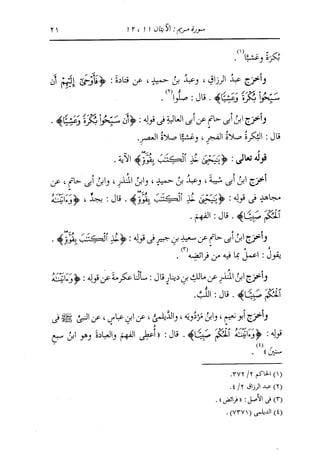 سورة مريم : الآيتان ١١ ، ١٢ ٢١
بُكرَةً وعَشيًّا(١).
وأخرَج عبدُ الرزاقِ ، وعبدُ بنُ حميدٍ ، عن قتادةَ : ﴿فَأَوْحَىٰٓ إِلَيْهِمْ أَن
سَبِّحُوا۟ بُكْرَةً وَعَشِيًّا﴾ . قال : صلُّوا(٢).
وأخرَج ابنُ أبى حاتمٍ عن أبى العاليةِ فى قولِه : ﴿أَن سَبِّحُوا۟ بُكْرَةً وَعَشِيًّا﴾ .
قال : البُكرةُ صلاةُ الفجرِ ، وعشيًّا صلاةُ العصرِ.
قولُه تعالى : ﴿يَٰيَحْيَىٰ خُذِ ٱلْكِتَٰبَ بِقُوَّةٍ﴾ الآية .
أخرَج ابنُ أبى شيبةَ ، وعبدُ بنُ حميدٍ ، وابنُ المنذرِ ، وابنُ أبى حاتمٍ ، عن
مجاهدٍ فى قولِه : ﴿يَٰيَحْيَىٰ خُذِ ٱلْكِتَٰبَ بِقُوَّةٍ﴾ . قال : بجدٍّ ، ﴿وَءَاتَيْنَٰهُ
ٱلْحُكْمَ صَبِيًّا﴾ . قال : الفهمَ .
وأخرَج ابنُ أبى حاتمٍ عن سعيدِ بنِ جبيرٍ فى قولِه : ﴿خُذِ ٱلْكِتَٰبَ بِقُوَّةٍ﴾ .
يقولُ : اعمَلْ بما فيه من فرائضِه(٣).
وأخرَج ابنُ المنذرِ عن مالكِ بنِ دينارٍ قال : سألْنا عكرمةَ عن قولِه : ﴿وَءَاتَيْنَٰهُ
ٱلْحُكْمَ صَبِيًّا﴾ . قال : اللُّبَّ.
وأخرَج أبو نعيمٍ ، وابنُ مَرْدُويَه ، والدَّيلميُّ ، عن ابنِ عباسٍ ، عن النبىِّ ﷺ فى
قولِه : ﴿وَءَاتَيْنَٰهُ ٱلْحُكْمَ صَبِيًّا﴾ . قال : «أُعطِى الفهمَ والعبادةَ وهو ابنُ سبعِ
سنينَ»(٤).
(١) الحاكم ٢/ ٣٧٢.
(٢) عبد الرزاق ٢/ ٤.
(٣) فى الأصل : «فرائض» .
(٤) الديلمى (٧٣٧١) .